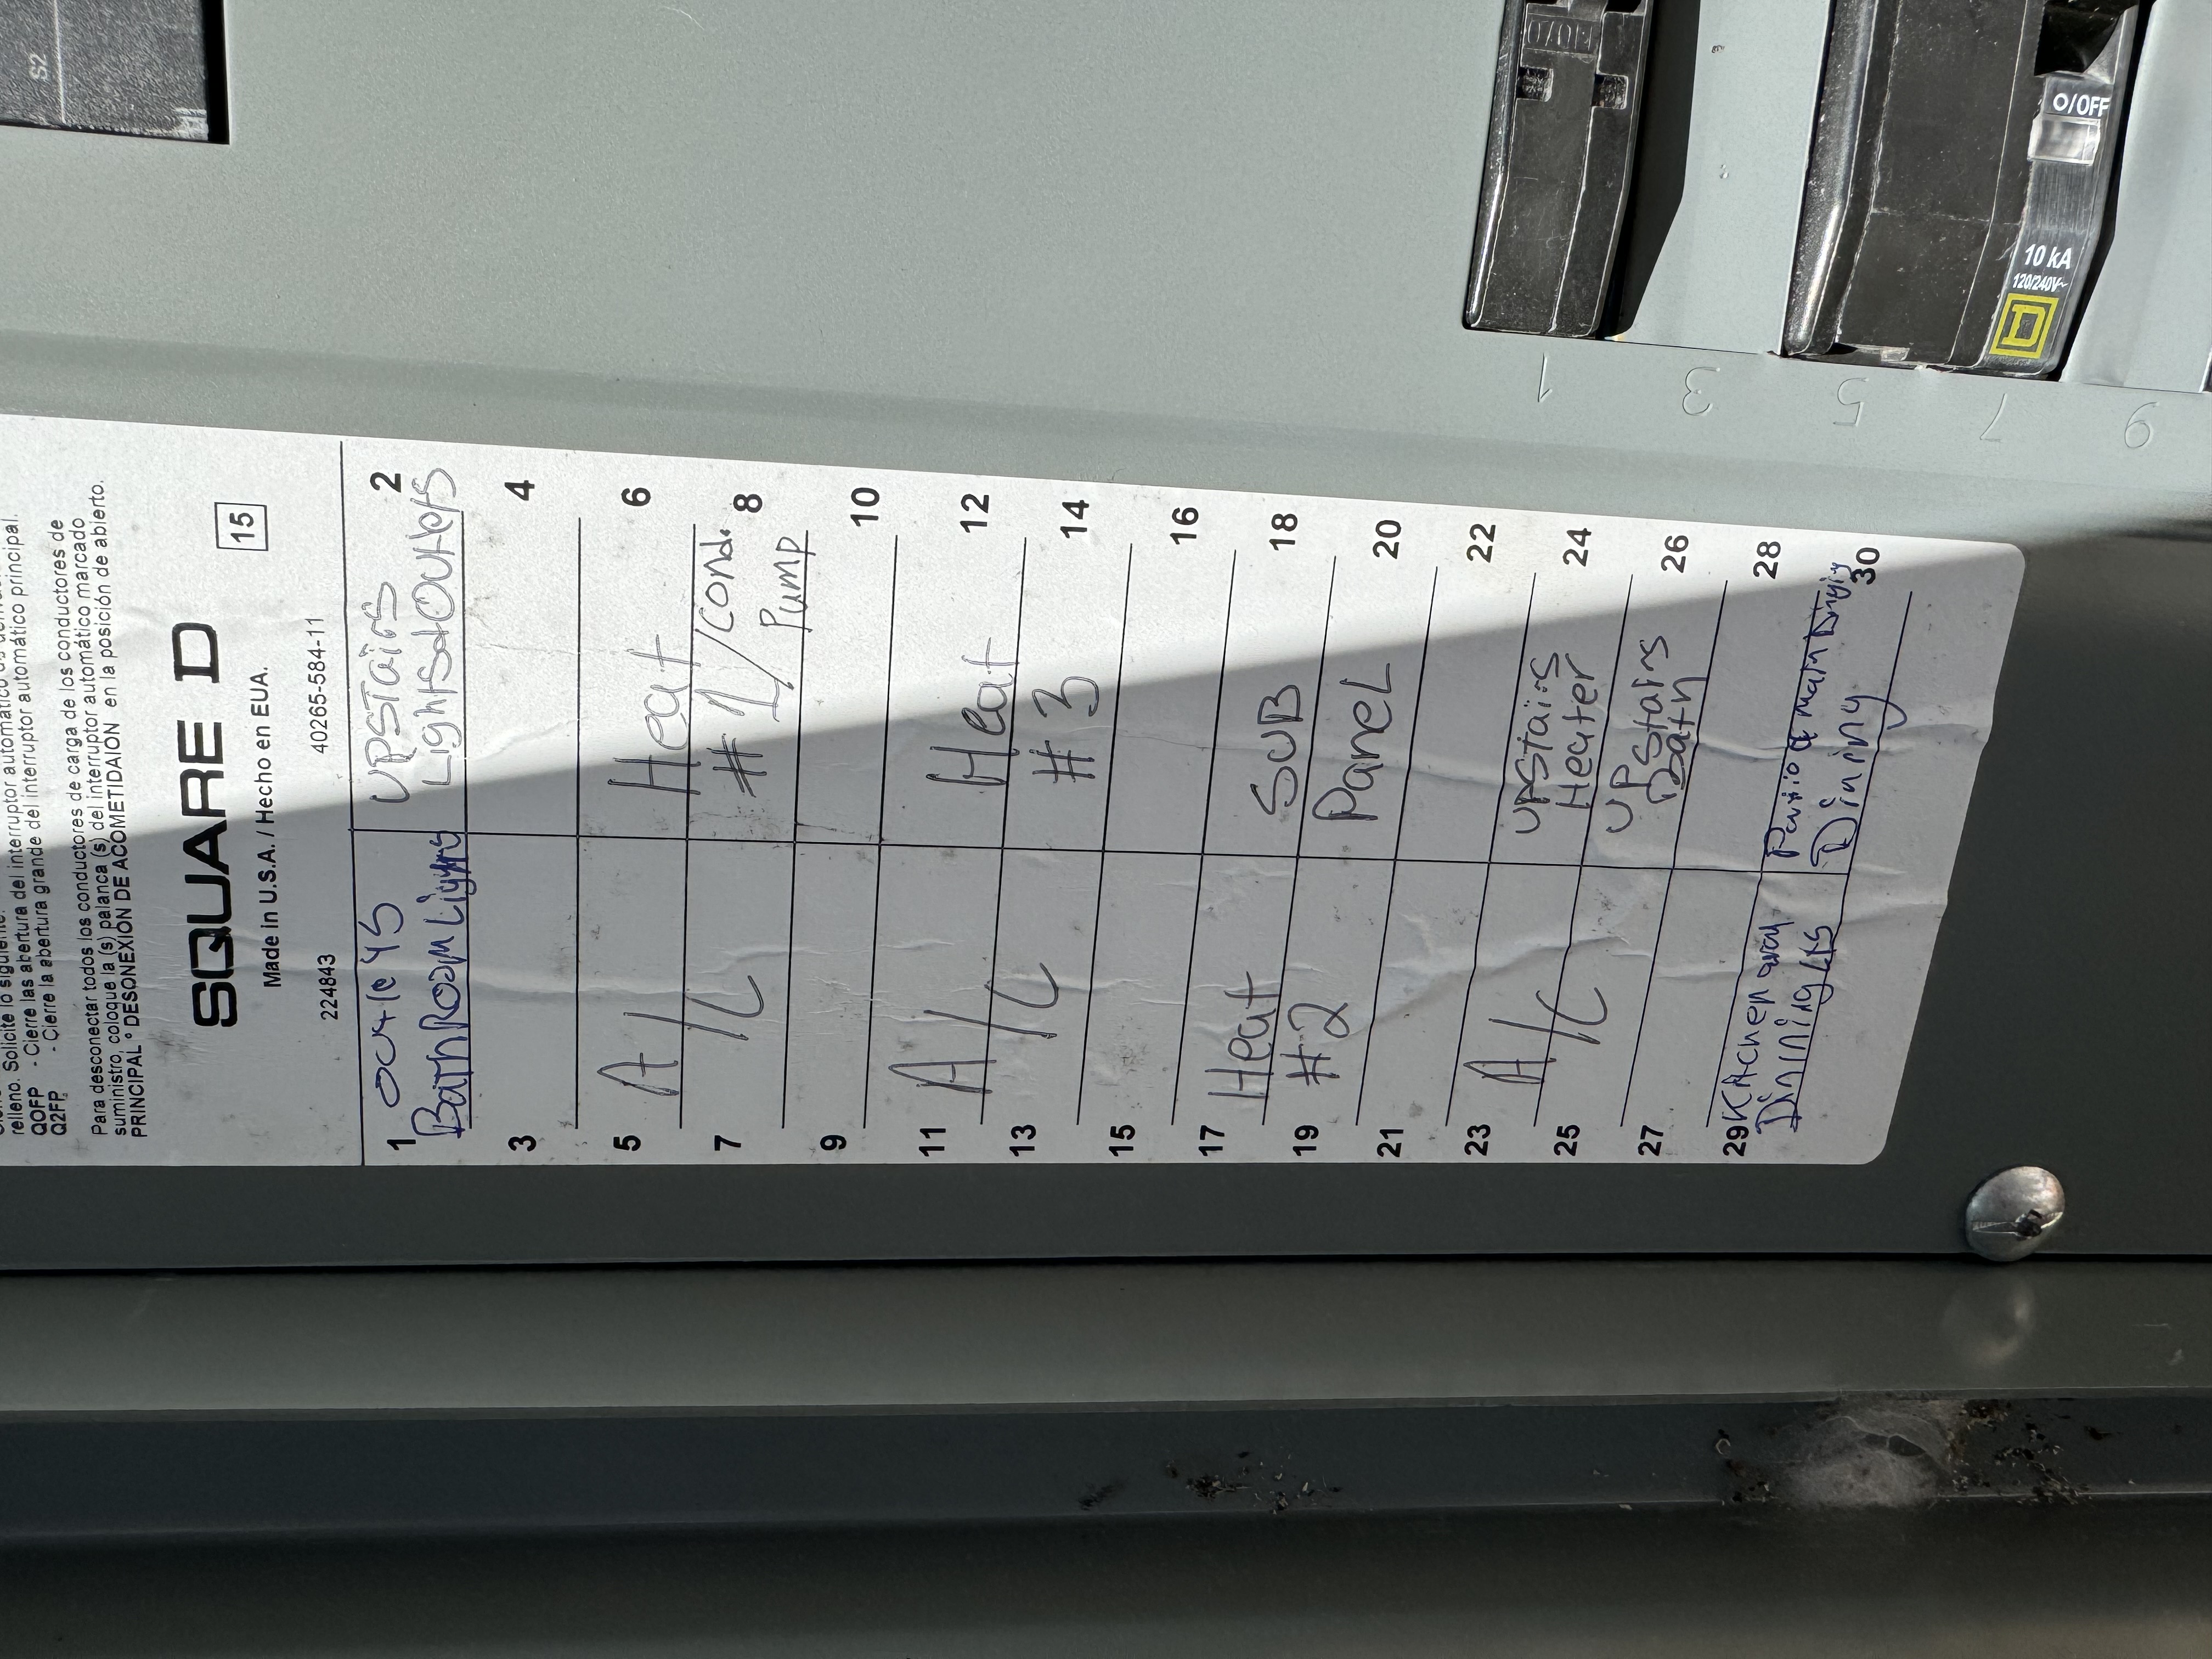 S2
O/OFF
O/OFF
10 kA
120/240V~
D
1
3
5
7
9
relleno. Solicite lo siguiente:
QOFP - Cierre las abertura del interruptor automático principal.
Q2FP - Cierre la abertura grande del interruptor automático principal.
Para desconectar todos los conductores de carga de los conductores de
suministro, coloque la (s) palanca (s) del interruptor automático marcado
PRINCIPAL ° DESONEXIÓN DE ACOMETIDAION en la posición de abierto.
SQUARE D
15
Made in U.S.A. / Hecho en EUA.
224843
40265-584-11
1 outleys
BathRoom Lights
UPSTairs 2
Lights&Outlets
3
4
5 A/C
7
Heat 6
#1/Cond. 8
Pump
9
10
11 A/C
13
Heat 12
#3 14
15
16
17 Heat
19 #2
SUB 18
PaneL 20
21
22
23 A/C
25
UPStairs 24
Heater
27
UPStairs 26
Bath
29 KAtchen and
Dinning Lts
Pario & main Dinig 28
Dining 30